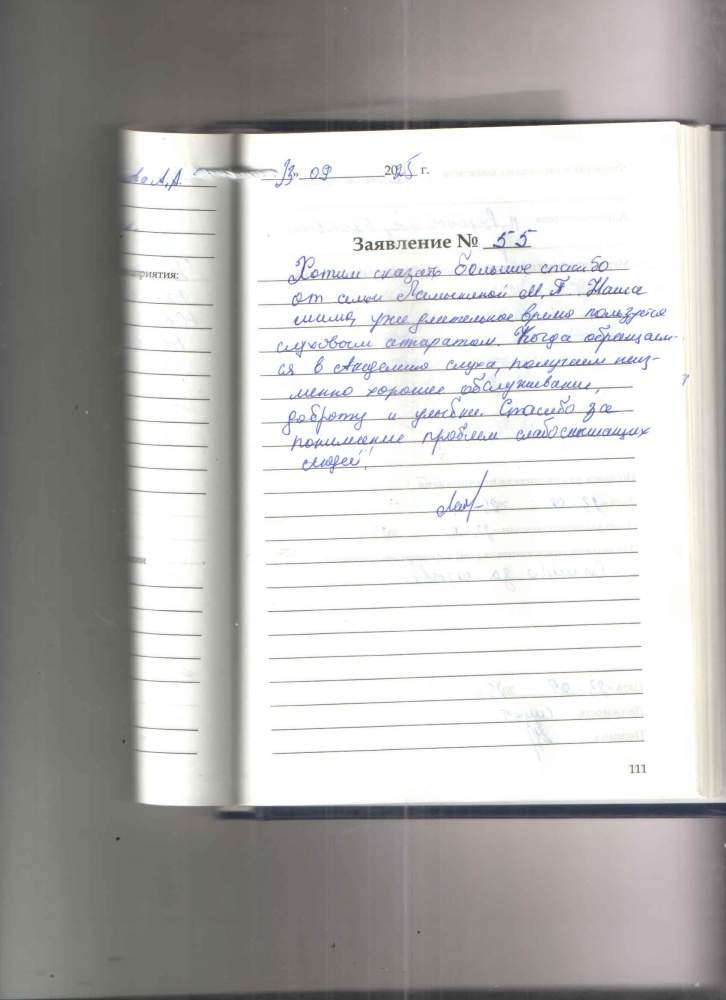 А.А.
приятия:
13» 09 2025 г.
Заявление № 55
Хотим сказать большое спасибо
от семьи М.П. Наша
мама, уже длительное время пользуется
слуховым аппаратом. Когда обращаем-
ся в Академию слуха, получаем неиз-
менно хорошее обслуживание,
доброту и улыбки. Спасибо за
понимание проблем слабослышащих
людей!
111